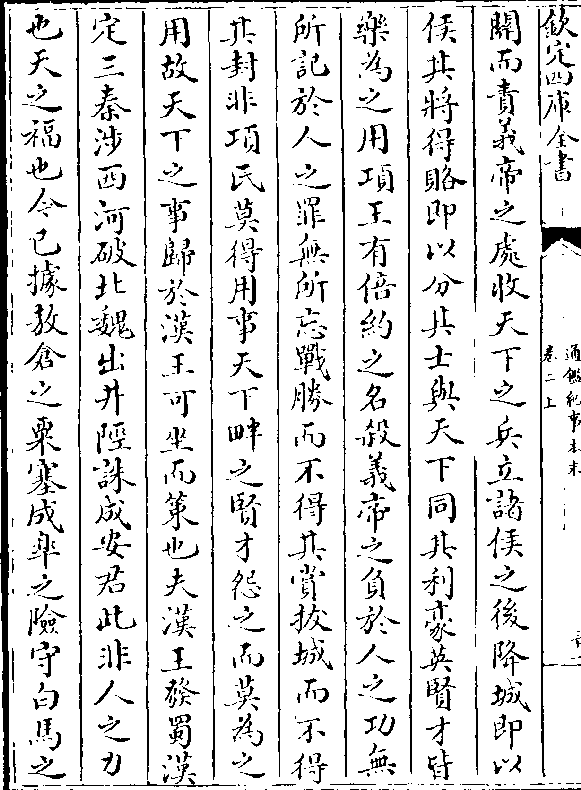 欽定四庫全書
通鑑紀事本末
卷二上
關而責義帝之處收天下之兵立諸侯之後降城即以
侯其將得賂即以分其士與天下同其利豪英賢才皆
樂為之用項王有倍約之名殺義帝之負於人之功無
所記於人之罪無所忘戰勝而不得其賞拔城而不得
其封非項氏莫得用事天下畔之賢才怨之而莫為之
用故天下之事歸於漢王可坐而策也夫漢王發蜀漢
定三秦涉西河破北魏出井陘誅成安君此非人之力
也天之福也今已據敖倉之粟塞成臯之險守白馬之